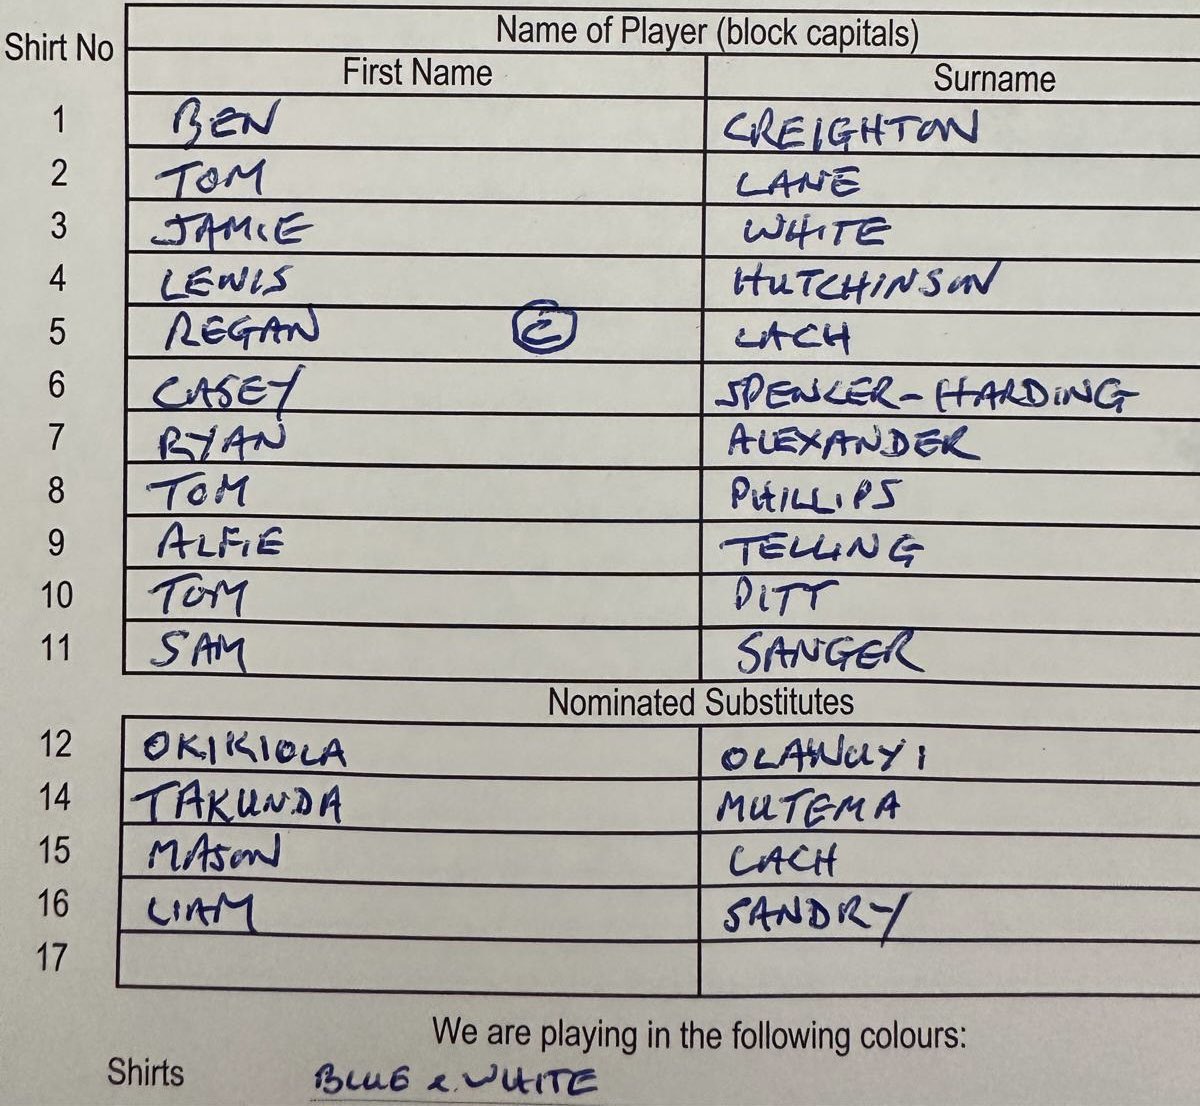 Shirt No
Name of Player (block capitals)
First Name Surname
1 BEN CREIGHTON
2 TOM LANE
3 JAMIE WHITE
4 LEWIS HUTCHINSON
5 REGAN C LACH
6 CASEY SPENCER-HARDING
7 RYAN ALEXANDER
8 TOM PHILLIPS
9 ALFIE TELLING
10 TOM PITT
11 SAM SANGER
Nominated Substitutes
12 OKIKIOLA OLAWUYI
14 TAKUNDA MUTEMA
15 MASON LACH
16 LIAM SANDRY
17
We are playing in the following colours:
Shirts BLUE & WHITE